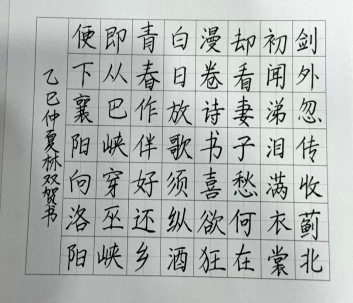 剑外忽传收蓟北
初闻涕泪满衣裳
却看妻子愁何在
漫卷诗书喜欲狂
白日放歌须纵酒
青春作伴好还乡
即从巴峡穿巫峡
便下襄阳向洛阳
乙巳仲夏林双贺书